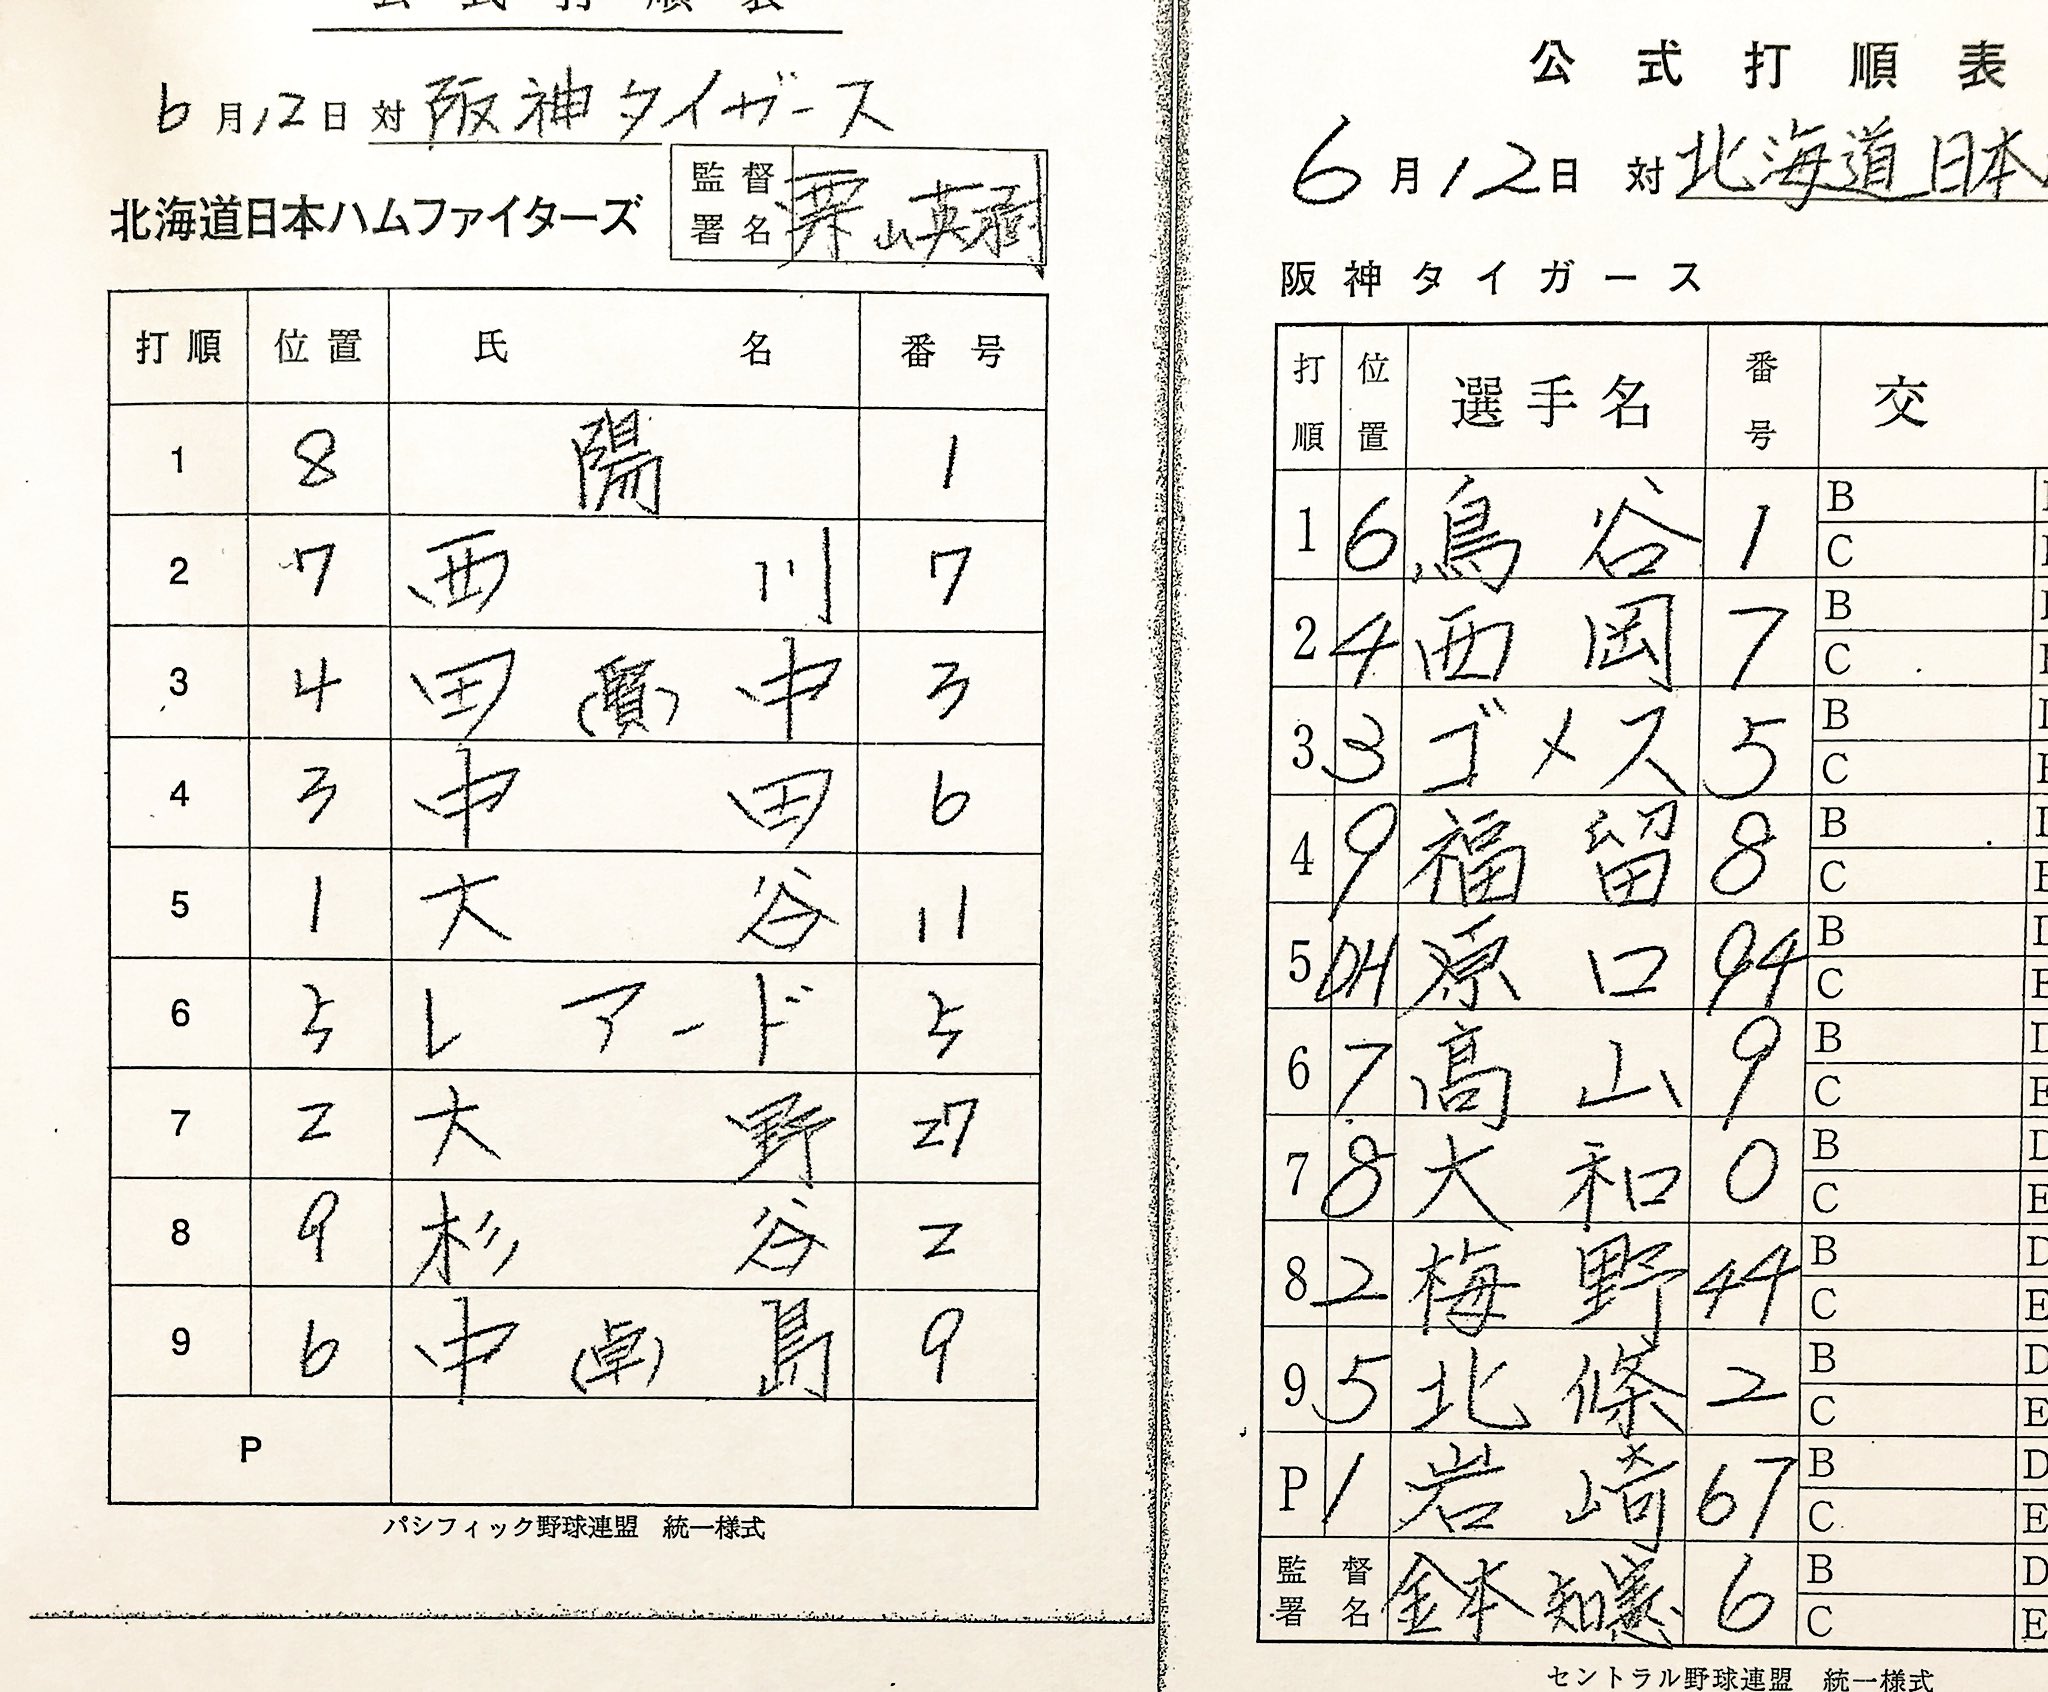 公式打順表
6月12日 対 阪神タイガース
北海道日本ハムファイターズ 監督署名 栗山英樹
打順 位置 氏名 番号
1 8 陽 1
2 7 西川 7
3 4 田(賢)中 3
4 3 中田 6
5 1 大谷 11
6 5 レアード 5
7 2 大野 27
8 9 杉谷 2
9 6 中(卓)島 9
P
パシフィック野球連盟 統一様式
公式打順表
6月12日 対 北海道日本
阪神タイガース
打順 位置 選手名 番号 交
1 6 鳥谷 1 B
C
2 4 西岡 7 B
C
3 3 ゴメス 5 B
C
4 9 福留 8 B
C
5 DH 原口 94 B
C
6 7 高山 9 B D
C E
7 8 大和 0 B D
C E
8 2 梅野 44 B D
C E
9 5 北條 2 B D
C E
P 1 岩崎 67 B D
C E
監督署名 金本知憲 6 B D
C E
セントラル野球連盟 統一様式